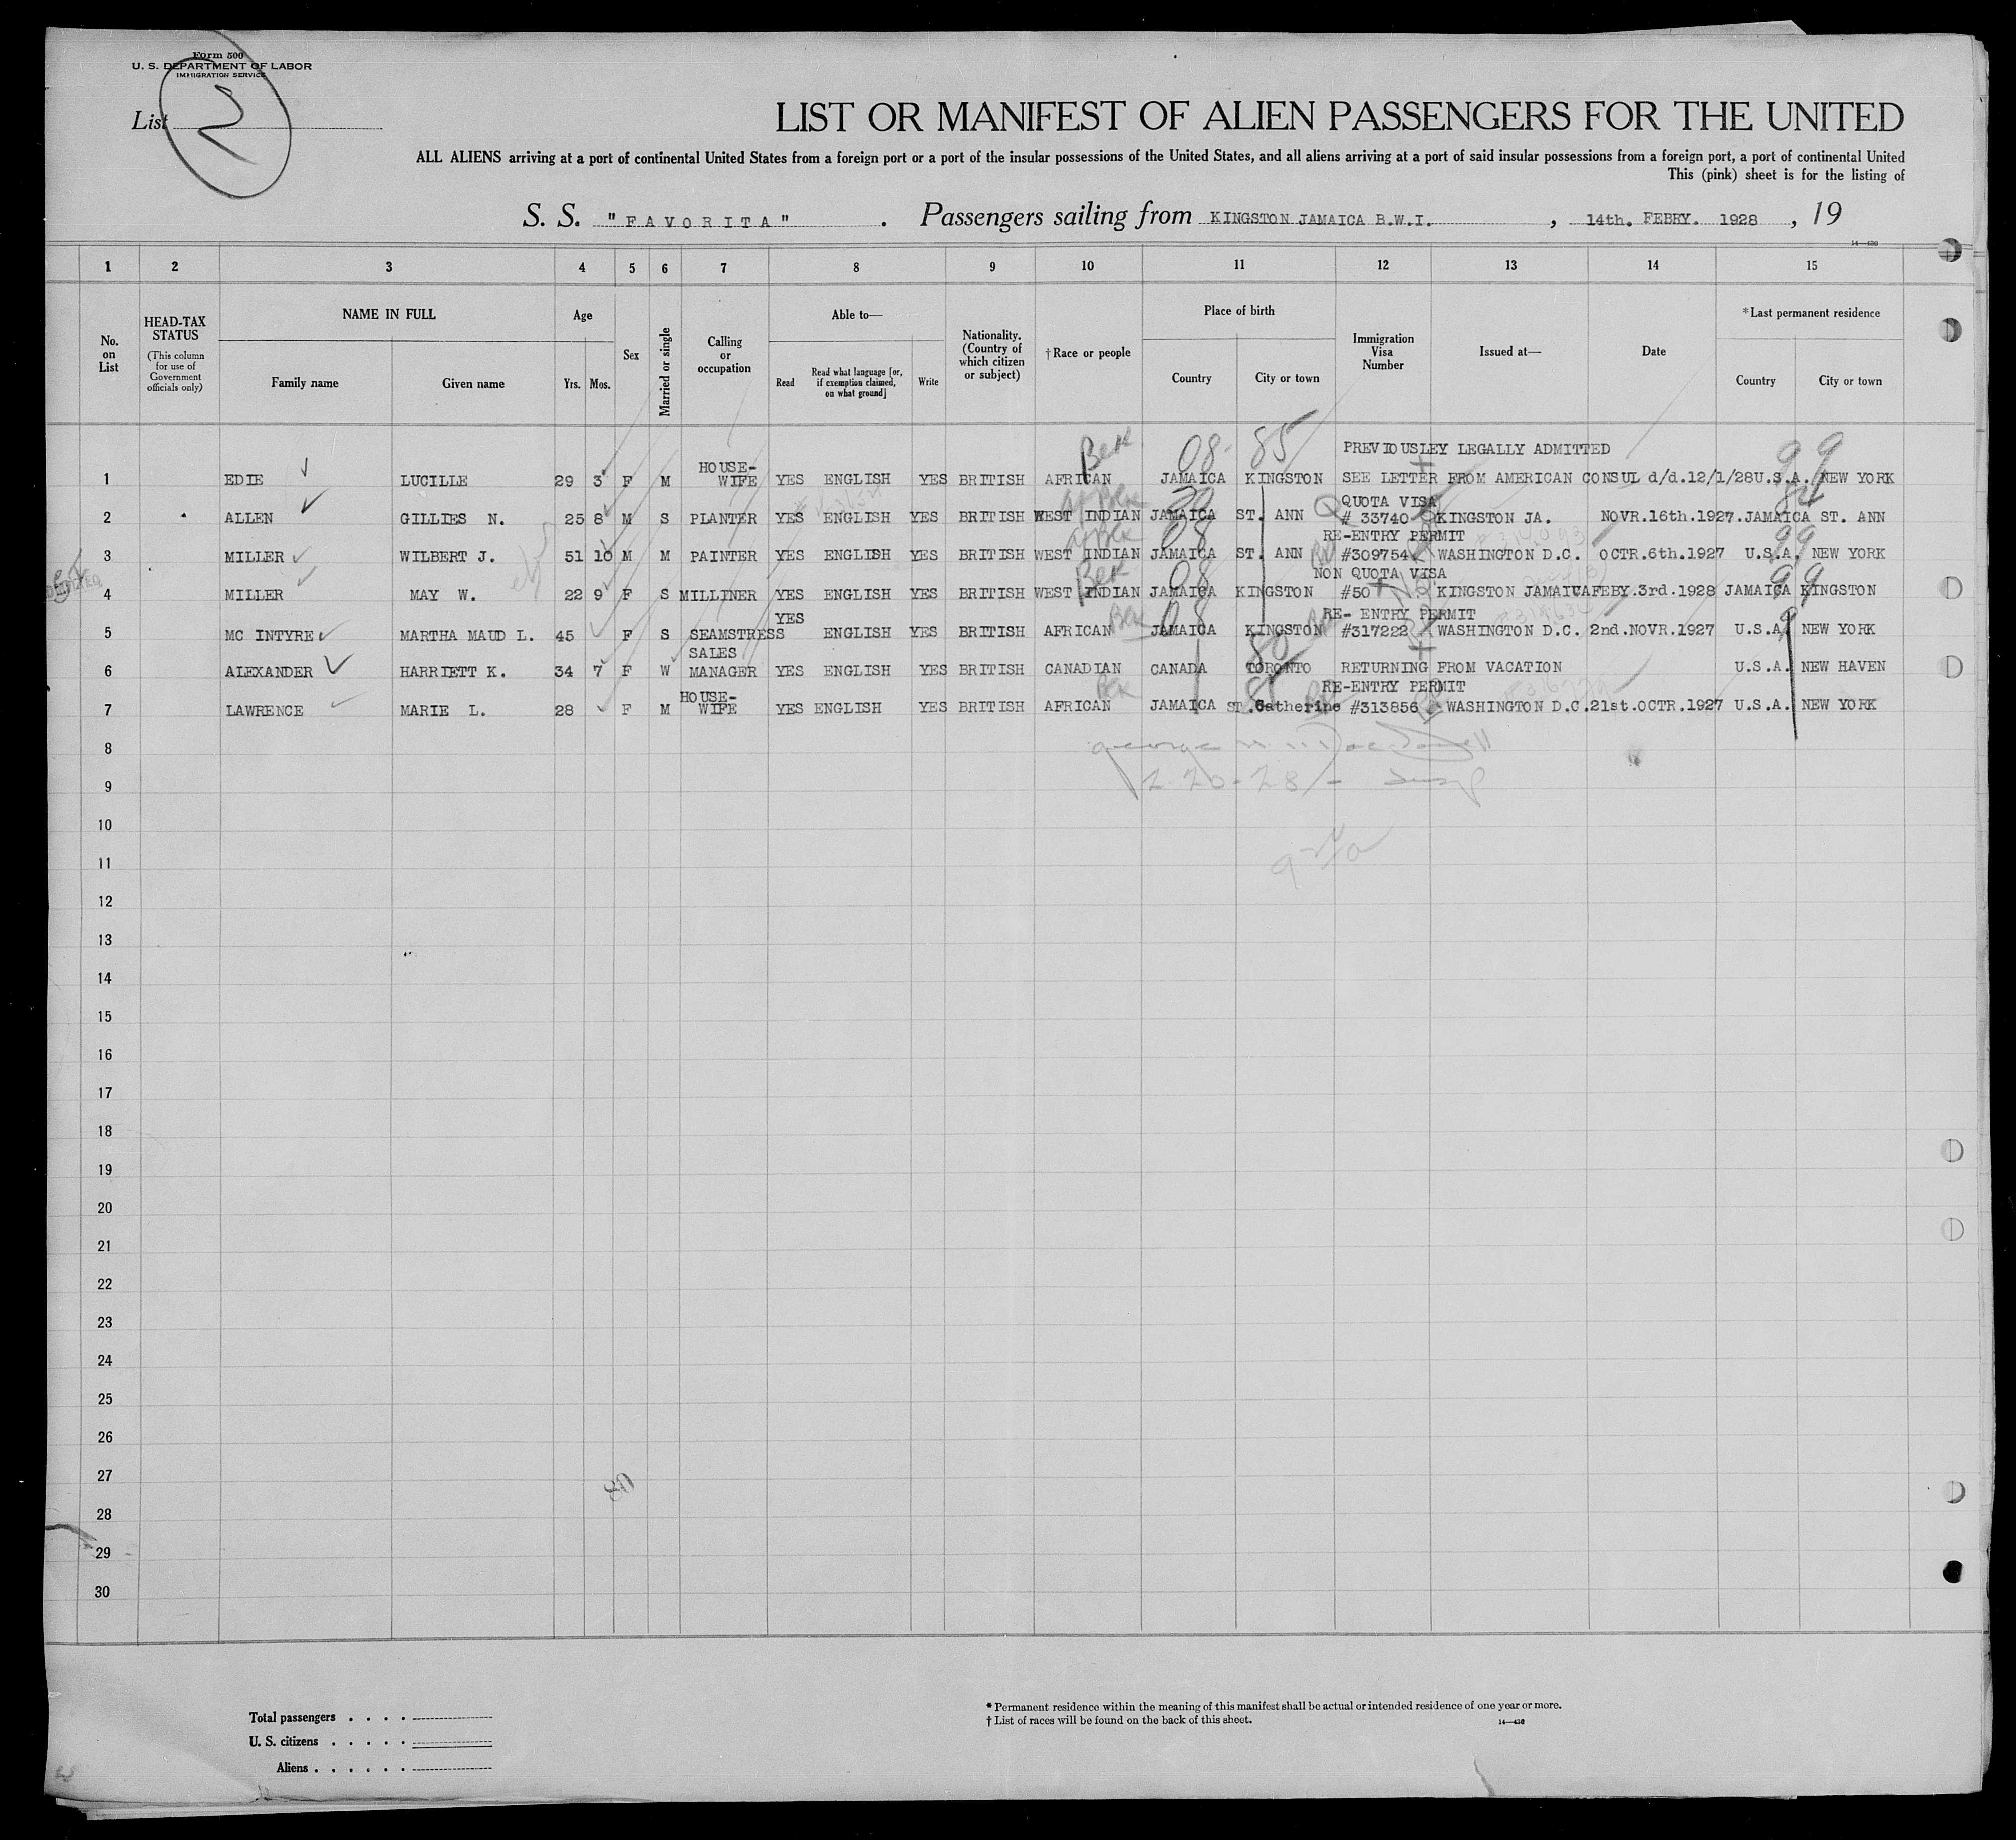 Form 500
U. S. DEPARTMENT OF LABOR
IMMIGRATION SERVICE
List 2
LIST OR MANIFEST OF ALIEN PASSENGERS FOR THE UNITED
ALL ALIENS arriving at a port of continental United States from a foreign port or a port of the insular possessions of the United States, and all aliens arriving at a port of said insular possessions from a foreign port, a port of continental United
This (pink) sheet is for the listing of
S. S. "FAVORITA" . Passengers sailing from KINGSTON JAMAICA B.W.I. , 14th. FEBRY. 1928 , 19
14—430
1 2 3 4 5 6 7 8 9 10 11 12 13 14 15
No. on List
HEAD-TAX STATUS
(This column for use of Government officials only)
NAME IN FULL
Family name Given name
Age
Yrs. Mos.
Sex
Married or single
Calling or occupation
Able to—
Read Read what language [or, if exemption claimed, on what ground] Write
Nationality. (Country of which citizen or subject)
†Race or people
Place of birth
Country City or town
Immigration Visa Number
Issued at—
Date
*Last permanent residence
Country City or town
PREVIOUSLEY LEGALLY ADMITTED
1 EDIE LUCILLE 29 3 F M HOUSE-WIFE YES ENGLISH YES BRITISH AFRICAN JAMAICA KINGSTON SEE LETTER FROM AMERICAN CONSUL d/d.12/1/28 U.S.A. NEW YORK
08 85 99
QUOTA VISA
2 ALLEN GILLIES N. 25 8 M S PLANTER YES ENGLISH YES BRITISH WEST INDIAN JAMAICA ST. ANN # 33740 KINGSTON JA. NOVR.16th.1927. JAMAICA ST. ANN
RE-ENTRY PERMIT
3 MILLER WILBERT J. 51 10 M M PAINTER YES ENGLISH YES BRITISH WEST INDIAN JAMAICA ST. ANN #309754 WASHINGTON D.C. OCTR.6th.1927 U.S.A. NEW YORK
08 99
NON QUOTA VISA
4 MILLER MAY W. 22 9 F S MILLINER YES ENGLISH YES BRITISH WEST INDIAN JAMAICA KINGSTON #50 KINGSTON JAMAICA FEBY.3rd.1928 JAMAICA KINGSTON
08 99
RE- ENTRY PERMIT
5 MC INTYRE MARTHA MAUD L. 45 F S SEAMSTRESS YES ENGLISH YES BRITISH AFRICAN JAMAICA KINGSTON #317222 WASHINGTON D.C. 2nd.NOVR.1927 U.S.A. NEW YORK
08
6 ALEXANDER HARRIETT K. 34 7 F W SALES MANAGER YES ENGLISH YES BRITISH CANADIAN CANADA TORONTO RETURNING FROM VACATION U.S.A. NEW HAVEN
RE-ENTRY PERMIT
7 LAWRENCE MARIE L. 28 F M HOUSE-WIFE YES ENGLISH YES BRITISH AFRICAN JAMAICA ST.Catherine #313856 WASHINGTON D.C. 21st.OCTR.1927 U.S.A. NEW YORK
8
9 2-20-28
10
11
12
13
14
15
16
17
18
19
20
21
22
23
24
25
26
27
28
29
30
Total passengers . . . .
U. S. citizens . . . . .
Aliens . . . . . .
* Permanent residence within the meaning of this manifest shall be actual or intended residence of one year or more.
† List of races will be found on the back of this sheet.
14—430